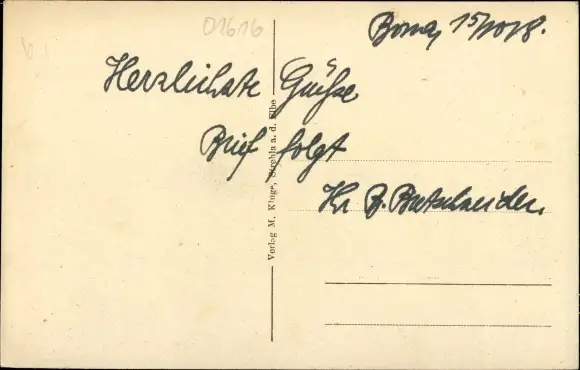 01616
Borna, 15/10 18.
Herzlichste Grüße
Brief folgt
Ihr B. Bretschneider.
Verlag M. Kluge, Strehla a. d. Elbe